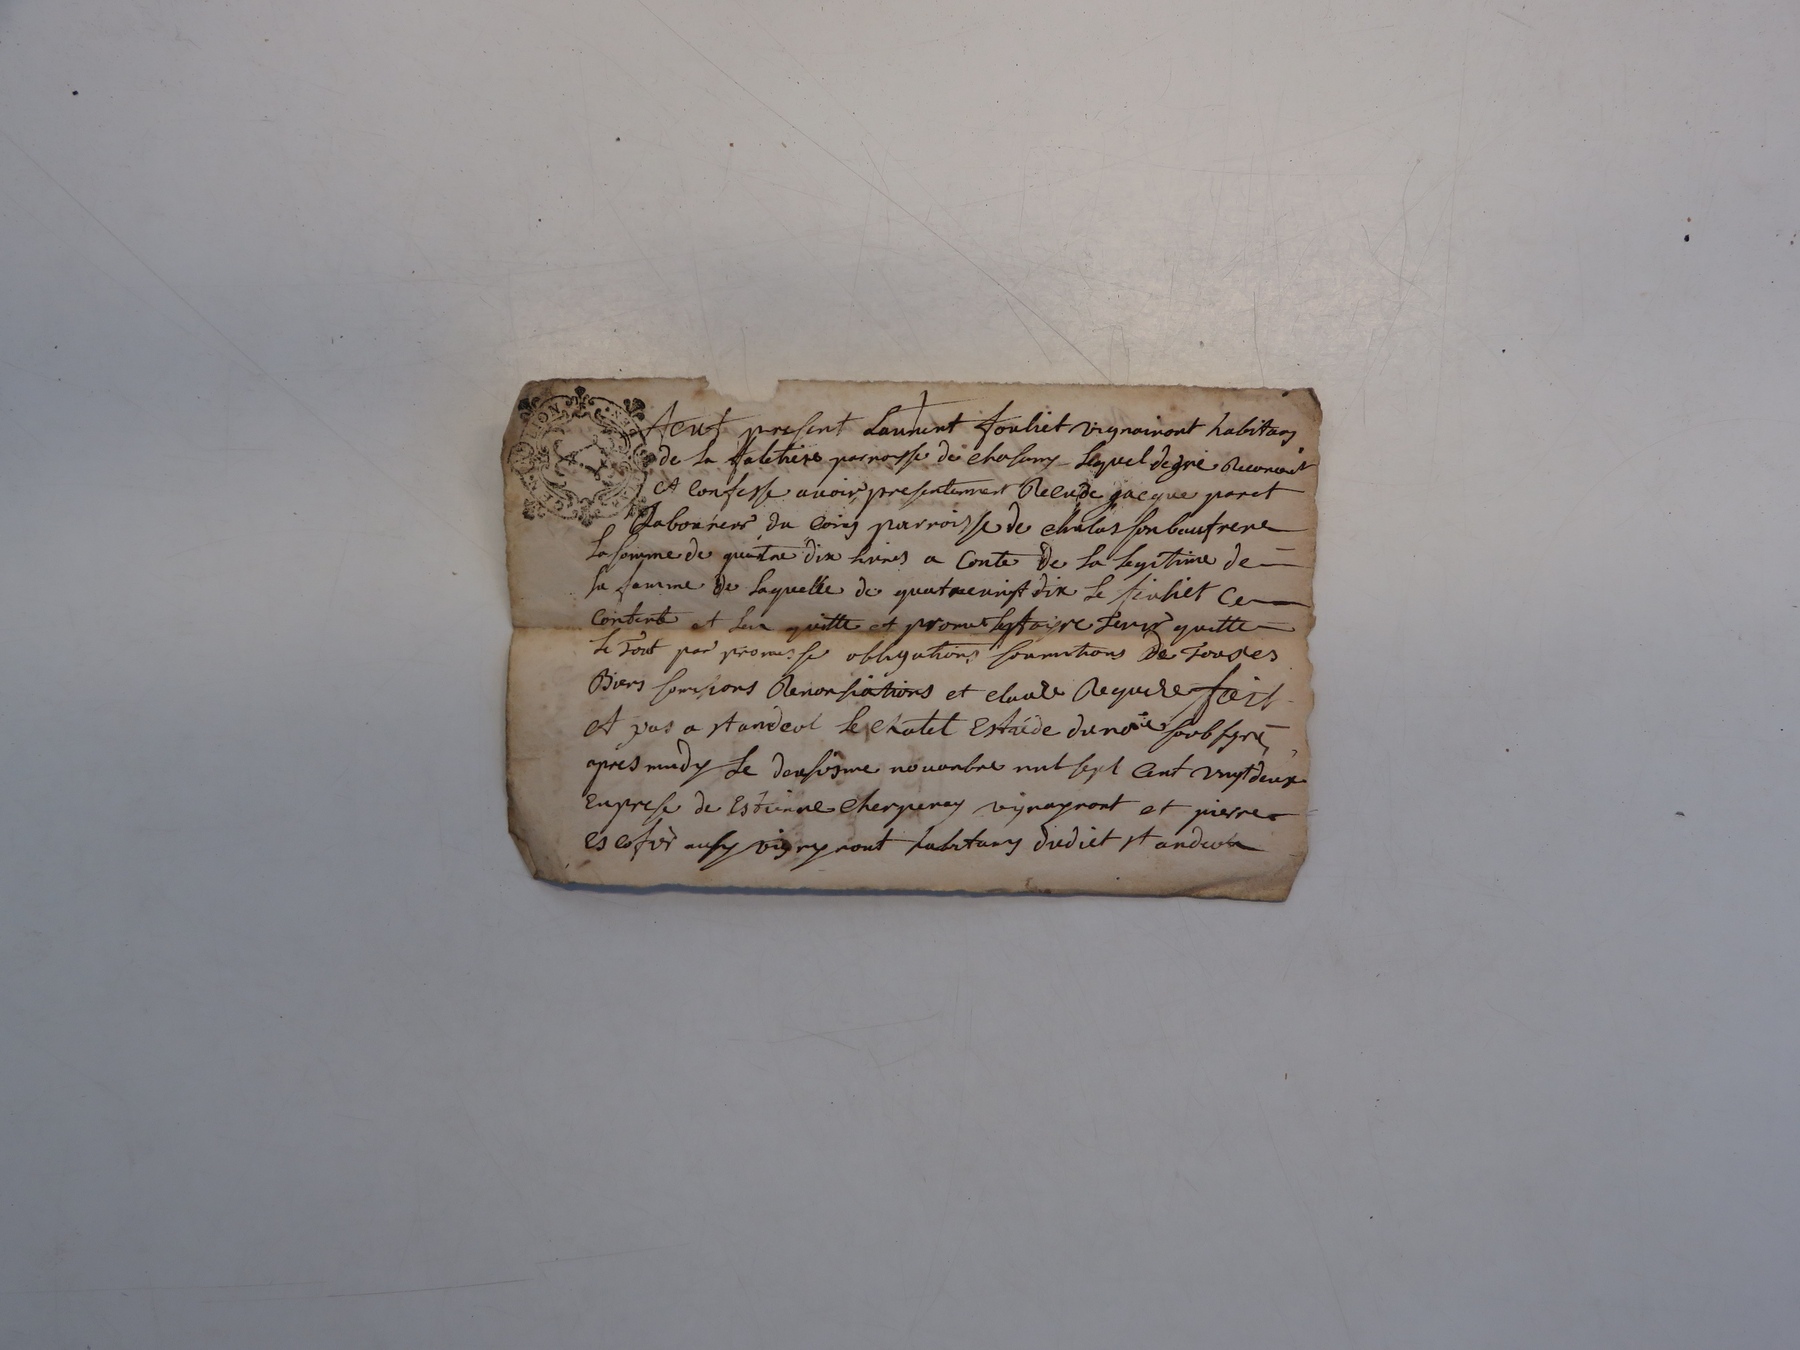 LION
feut present Laurent fouliet vignairont habitans
de la parroisse de chasany lequel de gré Reconoit
et confesse avoir presentement Receu de jacque paret
Laboureur du coin parroisse de chalas son baufrere
la somme de quatre dix livres a conte de la legitime de
sa famme de laquelle de quatrevingt dix le fouliet ce
contente et len quitte et promet faire tenir quitte
le tout par promesse obligations soumitions de tous ses
Biens Renonsiations et clause Requise fait
et pas a st andeol le chatel Estude du noire soubsyré
apres midy le dousisme novanbre mil sept cent vingt deux
En prese de Estienne cherpenay vignayront et pierre
escofir ausy vignyront habitans dudict st andeol